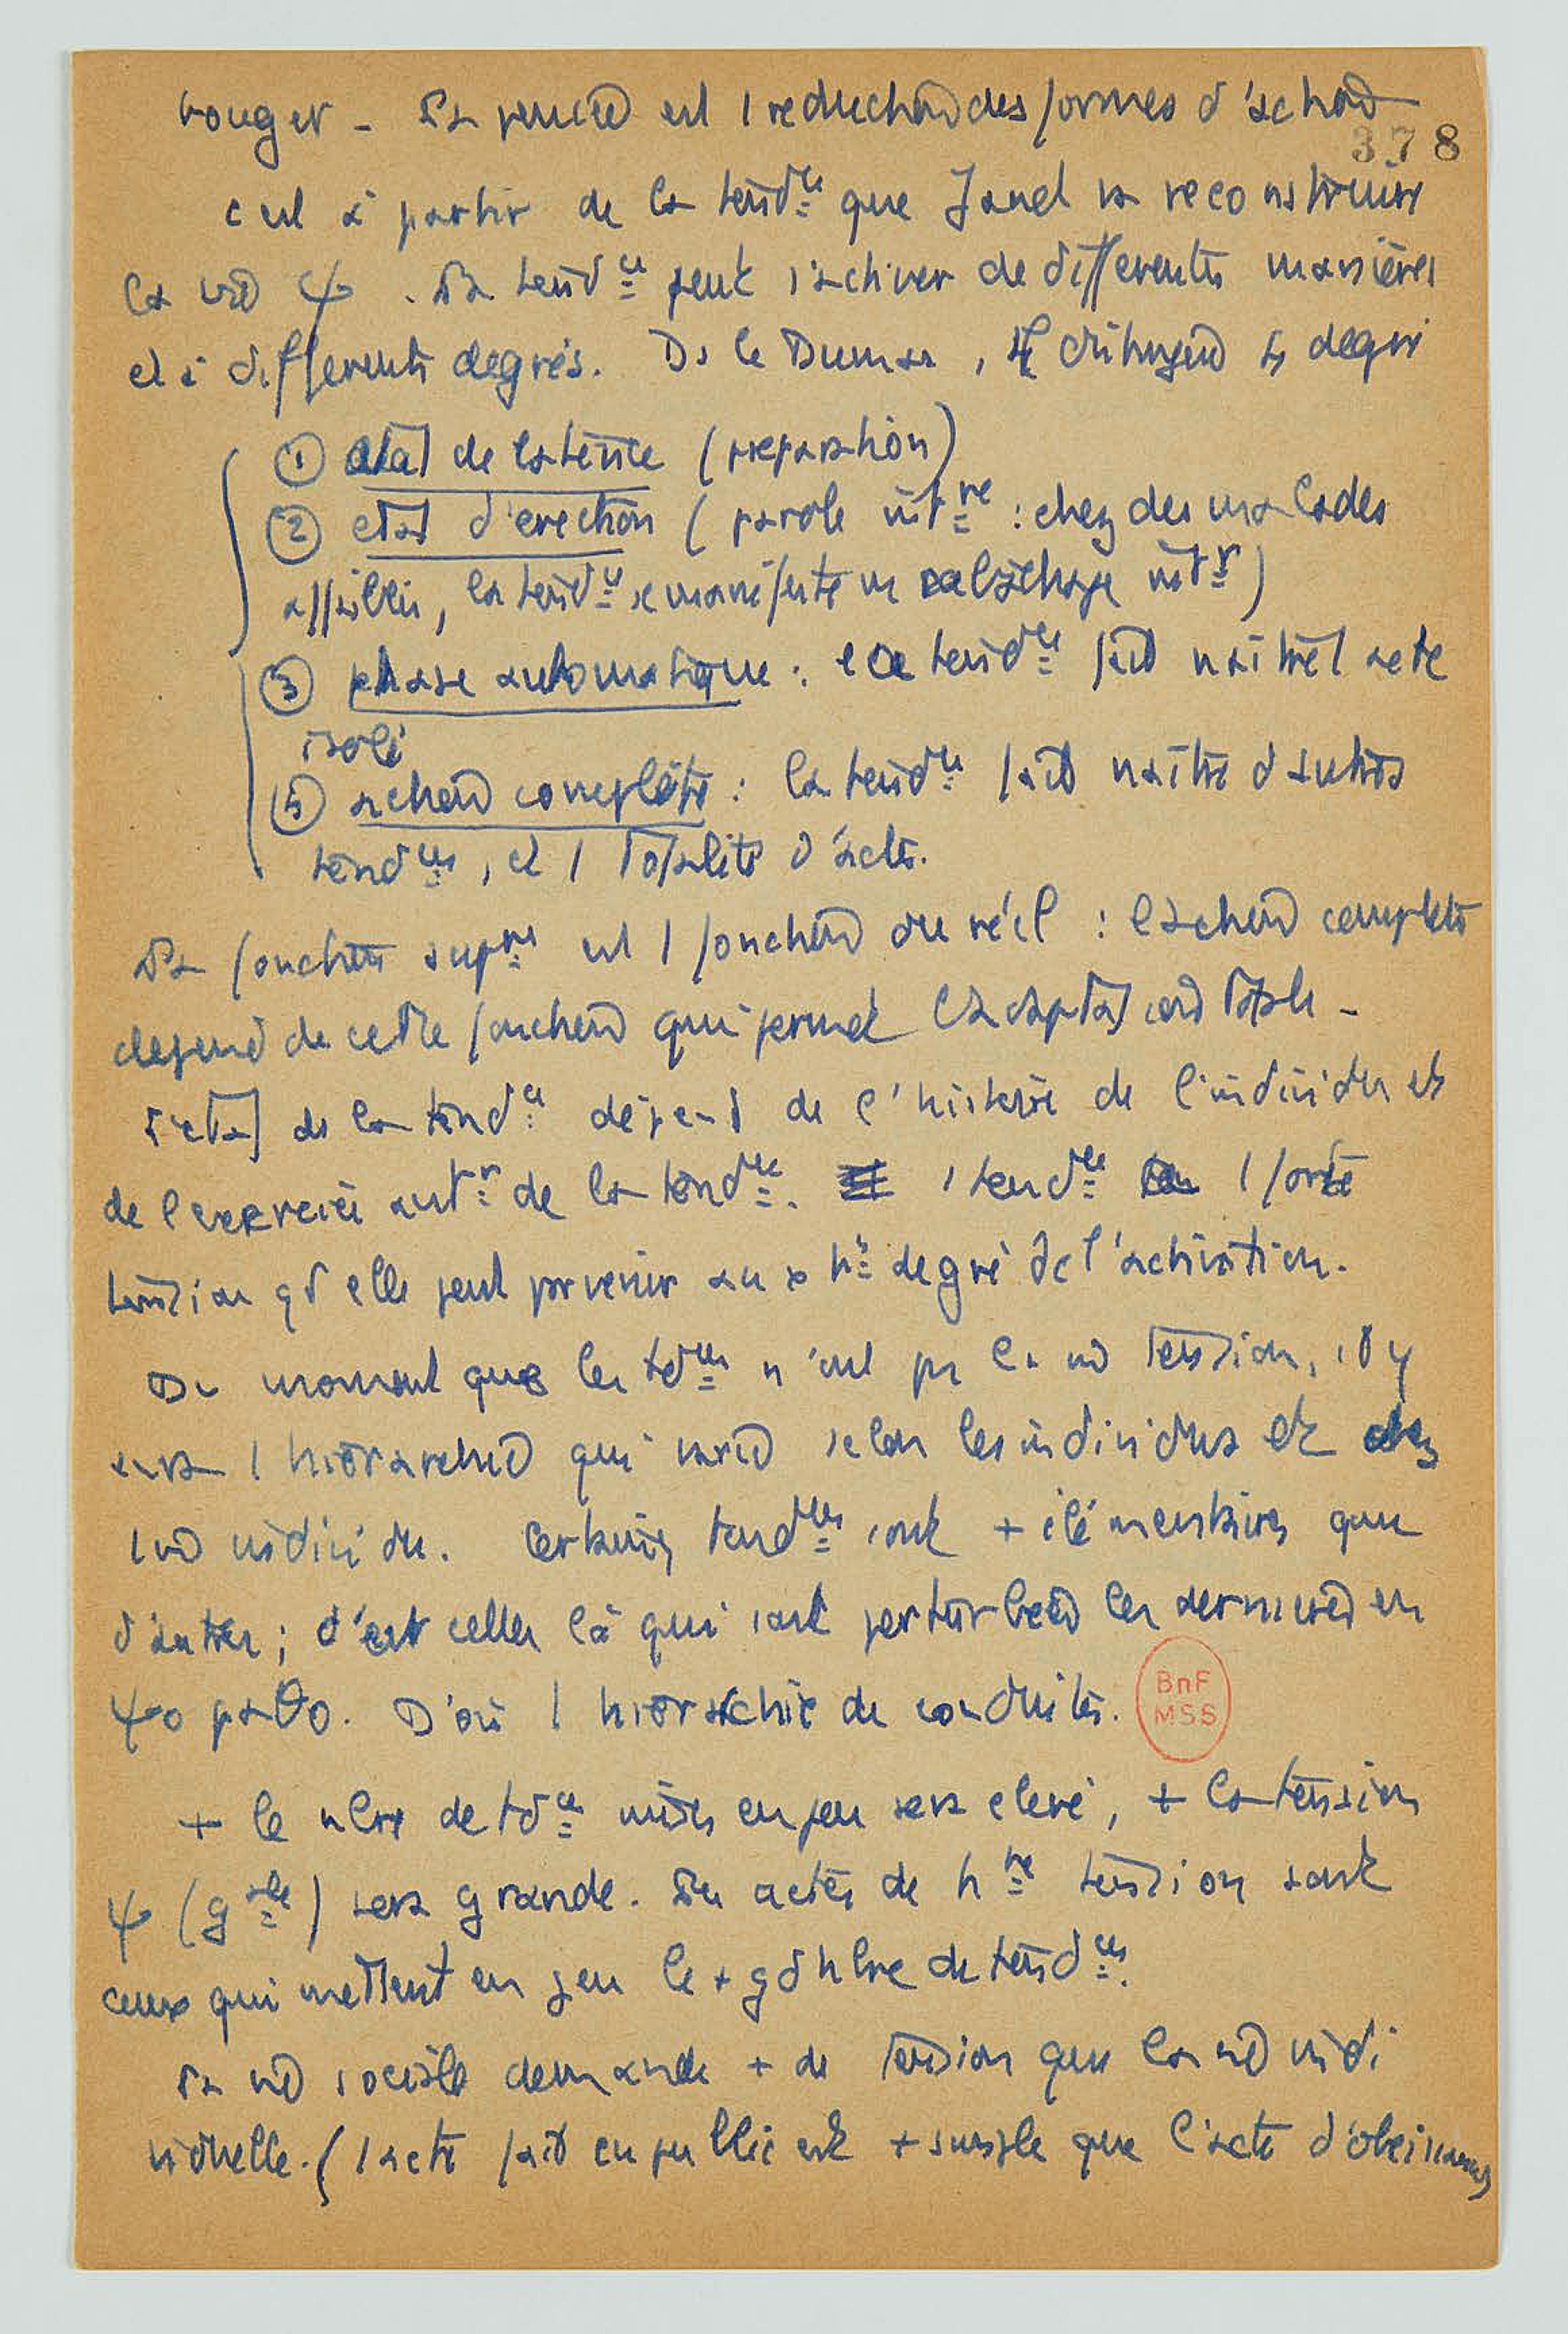 bouger - La pensée est 1 reduction des formes d'action
378
c est à partir de la tend^ce que Janet va reconstruire
la vie ψ. La tend^ce peut s'activer de differentes manières
et à differents degrés. Ds le Dumas, il distingue 4 degrés
① etat de latence (preparation)
② etat d'erection (parole int^re : chez des malades
affaiblis, la tend^ce se manifeste en int^r)
③ phase automatique : la tend^ce fait naître 1 acte
isolé
④ action complète : la tend^ce fait naître d autres
tend^ces, et 1 totalité d'actes.
La fonction sup^re est 1 fonction du réel : l action complète
depend de cette fonction qui permet l'adaptation totale -
L'etat de la tend^ce dépend de l'histoire de l'individu et
de l exercice ant^r de la tend^ce. 1 tend^ce a 1 forte
tension qd elle peut parvenir au + ht degré de l'activation.
Du moment que les td^ces n'ont pas la m^ tension, il y
aura 1 hierarchie qui varie selon les individus et chez
1 m^ individu. Certaines tend^ces sont + élémentaires que
d'autres ; c'est celles là qui sont perturbées les dernieres en
ψo pathθo. D'où 1 hierarchie de conduites.
BnF
MSS
+ le nbre de td^ces mises en jeu sera elevé, + la tension
ψ (g^ale) sera grande. Les actes de h^te tension sont
ceux qui mettent en jeu le + gd nbre de tend^ces.
La vie sociale demande + de tension que la vie indi
viduelle. (1 acte fait en public est + simple que l'acte d'obeissance